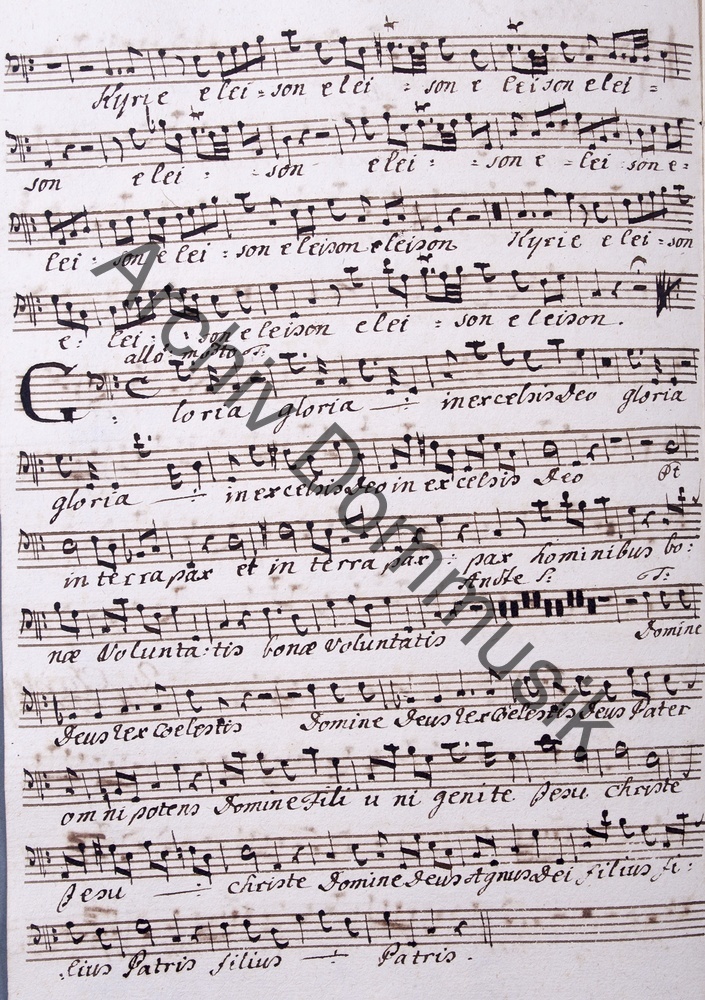 Kyrie elei = son elei = son e leison elei =
son elei = son elei = son e = lei son e =
lei = son e lei = son eleison eleison Kyrie elei = son
e = lei = son eleison elei = son eleison.
allo: molto T:
Gloria gloria in excelsis Deo gloria
gloria in excelsis Deo in excelsis Deo Et
in terra pax et in terra pax : pax hominibus bo:
Andte S: T:
næ Volunta:tis bonæ voluntatis Domine
Deus rex Coelestis Domine Deus rex Coelestis Deus Pater
omnipotens Domine Fili u ni genite Jesu Christe
Jesu Christe Domine Deus Agnus Dei filius fi:
lius Patris filius Patris.
Archiv Dommusik